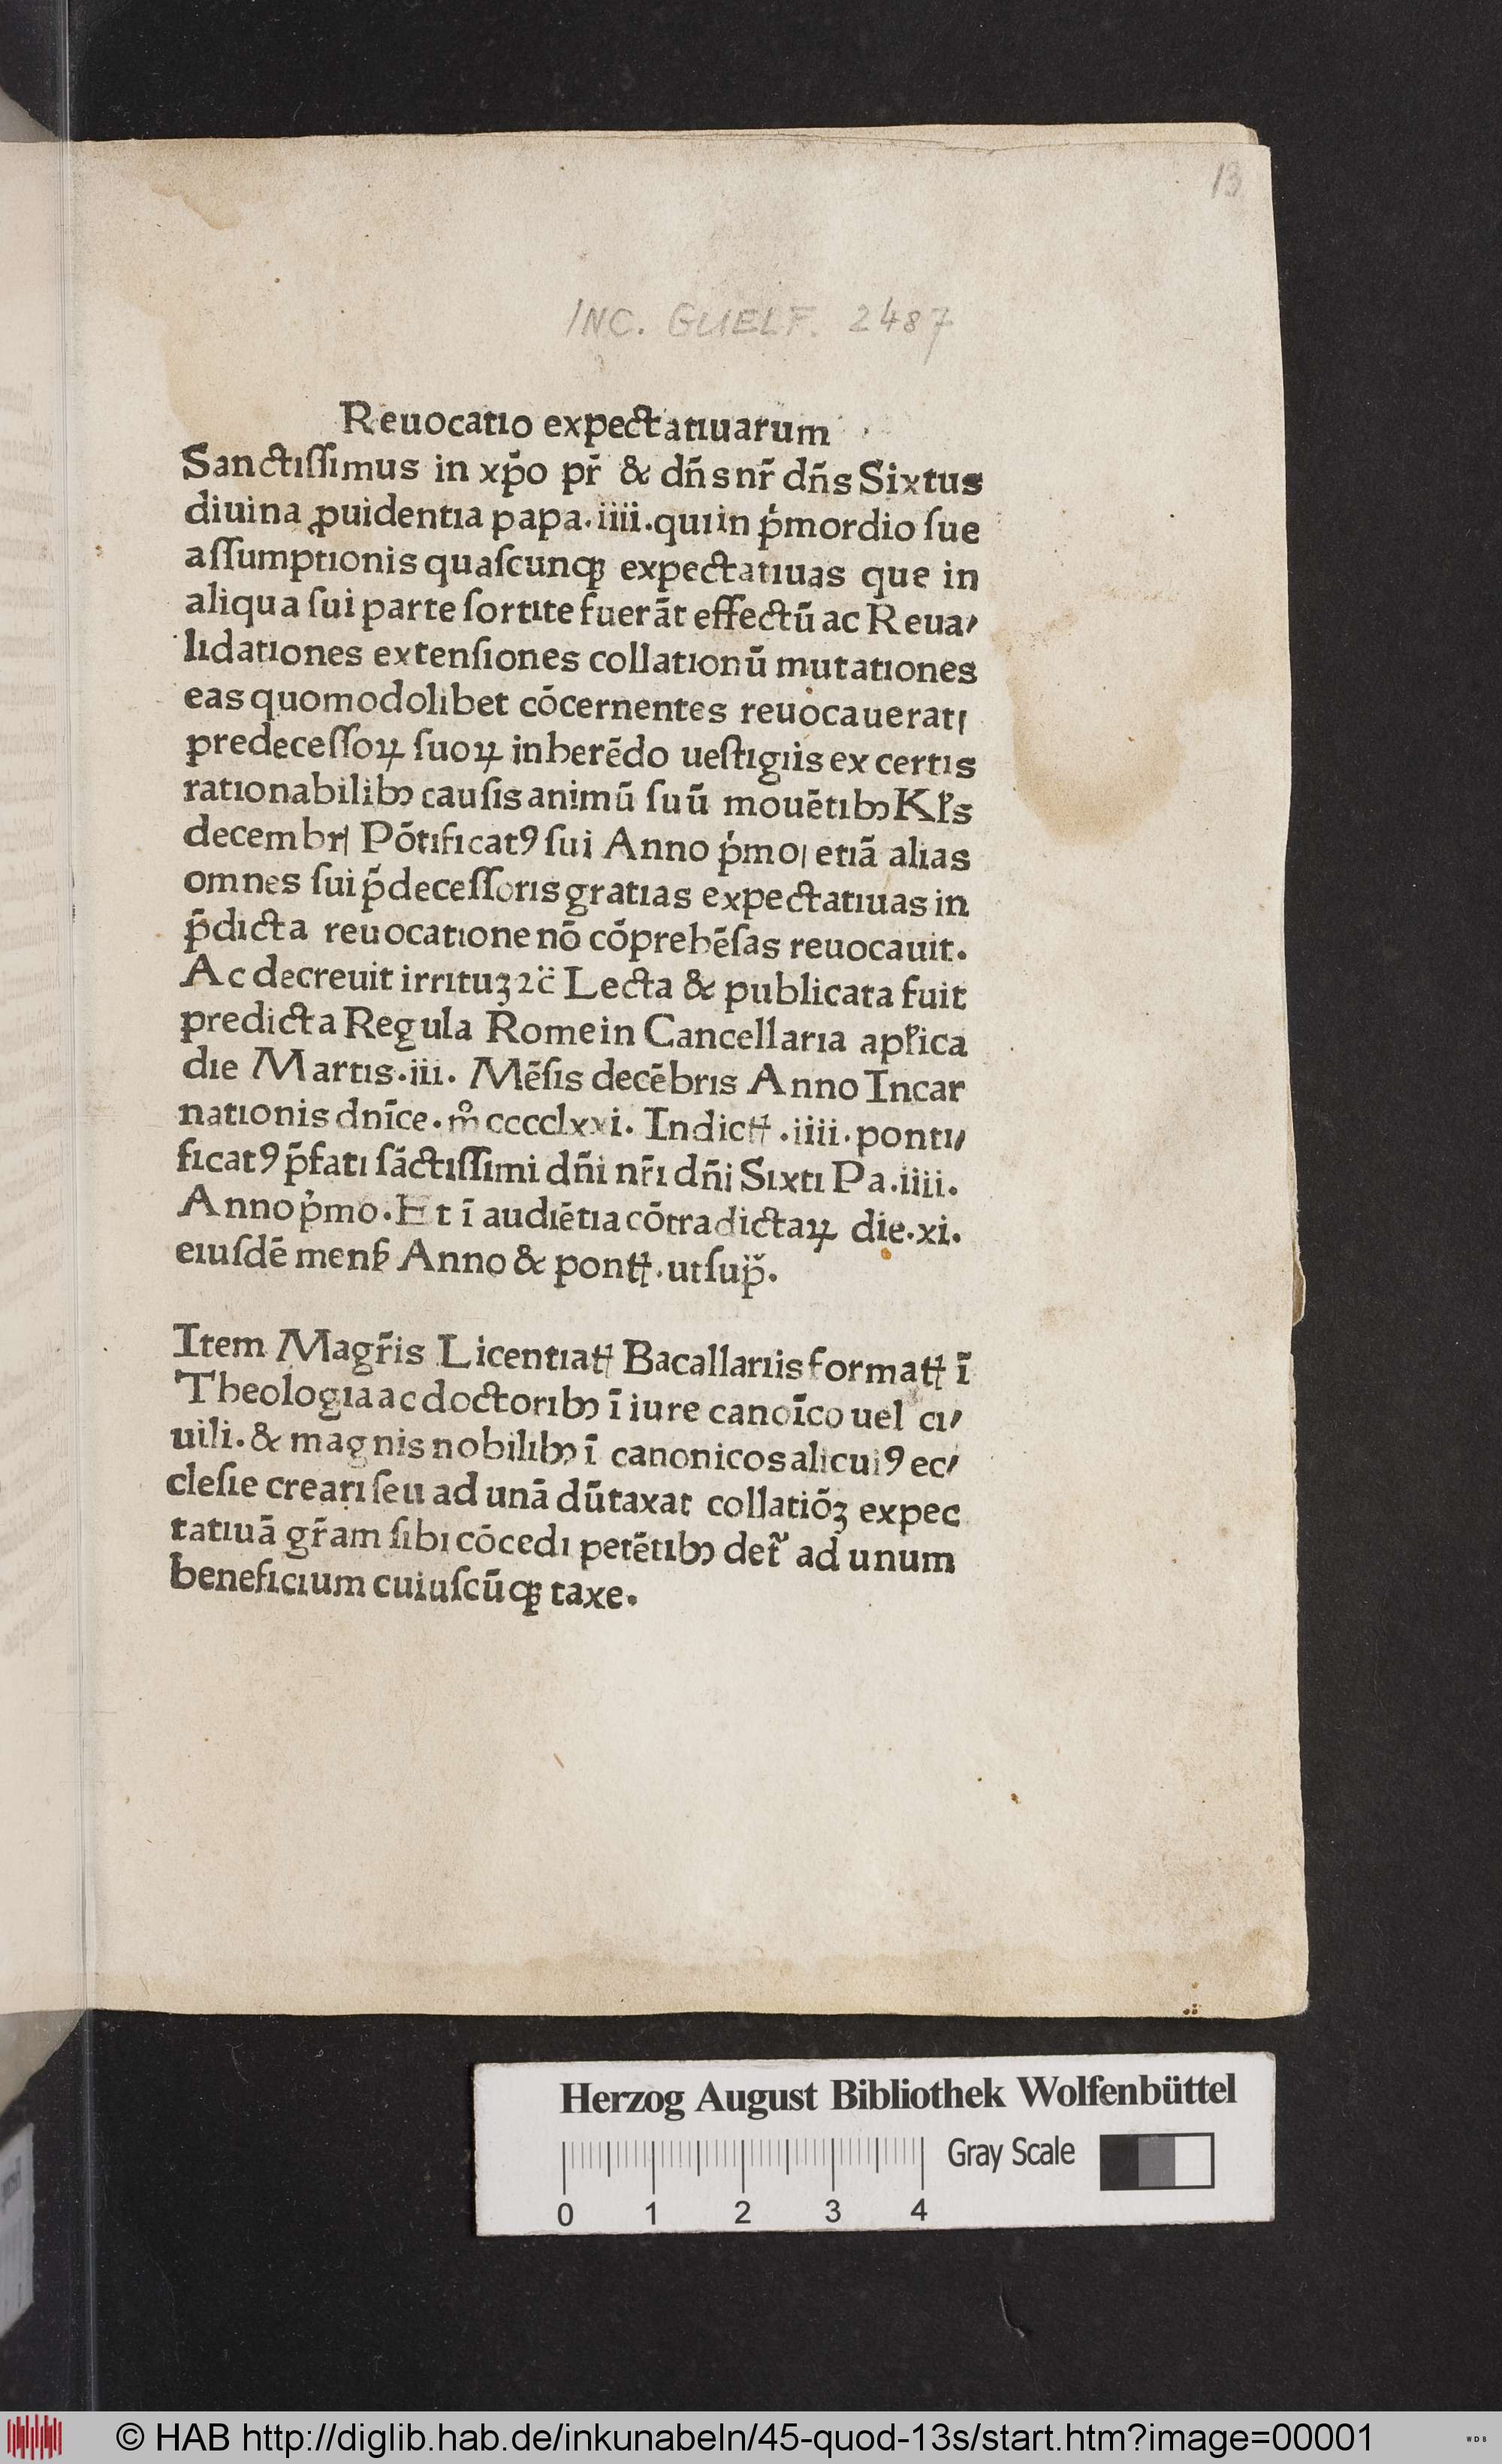 13
INC. GUELF. 2487
Reuocatio expectatiuarum
Sanctiſſimus in xp̄o pr̄ & dn̄s nr̄ dn̄s Sixtus
diuina ꝓuidentia papa.iiii.qui in pͥmordio ſue
aſſumptionis quaſcunqꝫ expectatiuas que in
aliqua ſui parte ſortite fuerāt effectū ac Reua⸗
lidationes extenſiones collationū mutationes
eas quomodolibet cōcernentes reuocauerat|
predeceſſoꝝ ſuoꝝ inherēdo ueſtigiis ex certis
rationabilibꝫ cauſis animū ſuū mouētibꝫ Kl̄s
decembr| Pōtificatꝰ ſui Anno pͥmo| etiā alias
omnes ſui p̄deceſſoris gratias expectatiuas in
p̄dicta reuocatione nō cōprehēſas reuocauit.
Ac decreuit irrituꝫ ⁊c̄ Lecta & publicata fuit
predicta Regula Rome in Cancellaria apl̄ica
die Martis.iii. Mēſis decēbris Anno Incar
nationis dnīce.mͦ cccclxxi. Indictꝭ.iiii.ponti⸗
ficatꝰ p̄fati ſāctiſſimi dn̄i nr̄i dn̄i Sixti Pa.iiii.
Anno pͥmo. Et ī audiētia cōtradictaꝝ die.xi.
eiuſdē menẜ Anno & pontꝭ.ut ſupᷓ.
Item Magr̄is Licentiatꝭ Bacallariis formatꝭ ī
Theologia ac doctoribꝫ ī iure canoīco uel ci⸗
uili. & magnis nobilibꝫ ī canonicos alicuiꝰ ec⸗
cleſie creari ſeu ad unā dūtaxat collatiōꝫ expec
tatiuā gr̄am ſibi cōcedi petētibꝫ det᷑ ad unum
beneficium cuiuſcūqꝫ taxe.
Herzog August Bibliothek Wolfenbüttel
Gray Scale
0 1 2 3 4
© HAB http://diglib.hab.de/inkunabeln/45-quod-13s/start.htm?image=00001
WDB